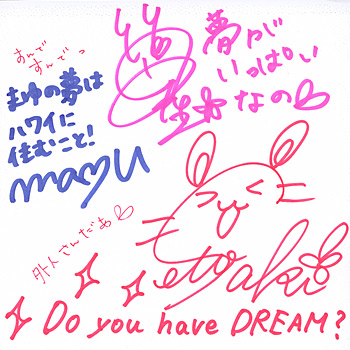 すんで
すんでっ
まゆの夢は
ハワイに
住むこと!
mayu
夢が
いっぱい
なの
外人さんだぁ
Do you have DREAM?